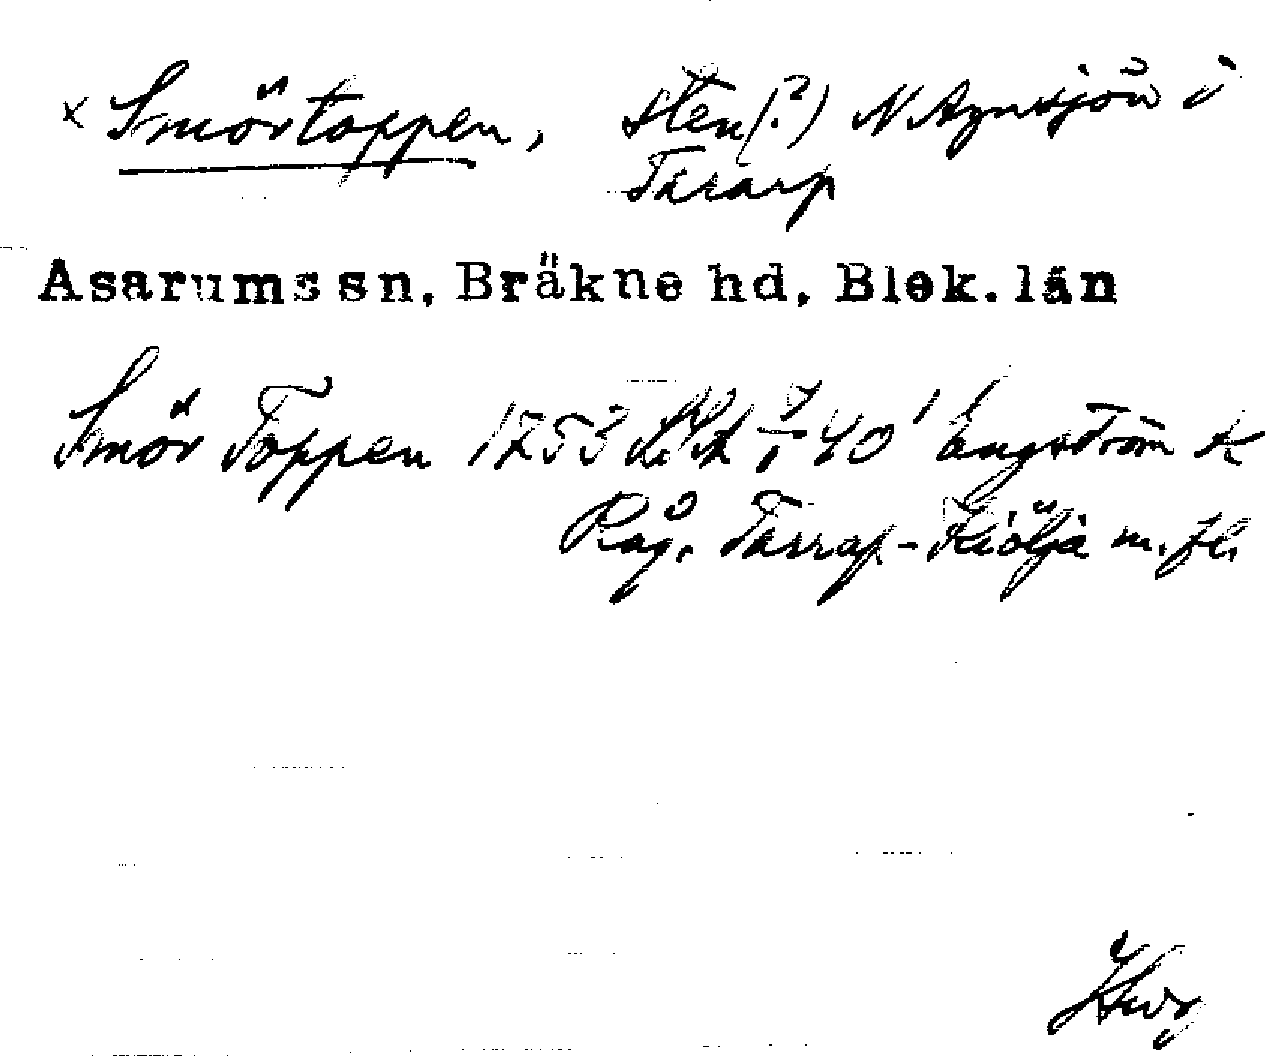 x Smörtoppen, sten(?) N. Agnsjön i
Tararp
Asarums sn, Bräkne hd, Blek. län
Smör Toppen 1753 7/1 40' Engström K
Råg. Tararp - Kiölja m. fl.